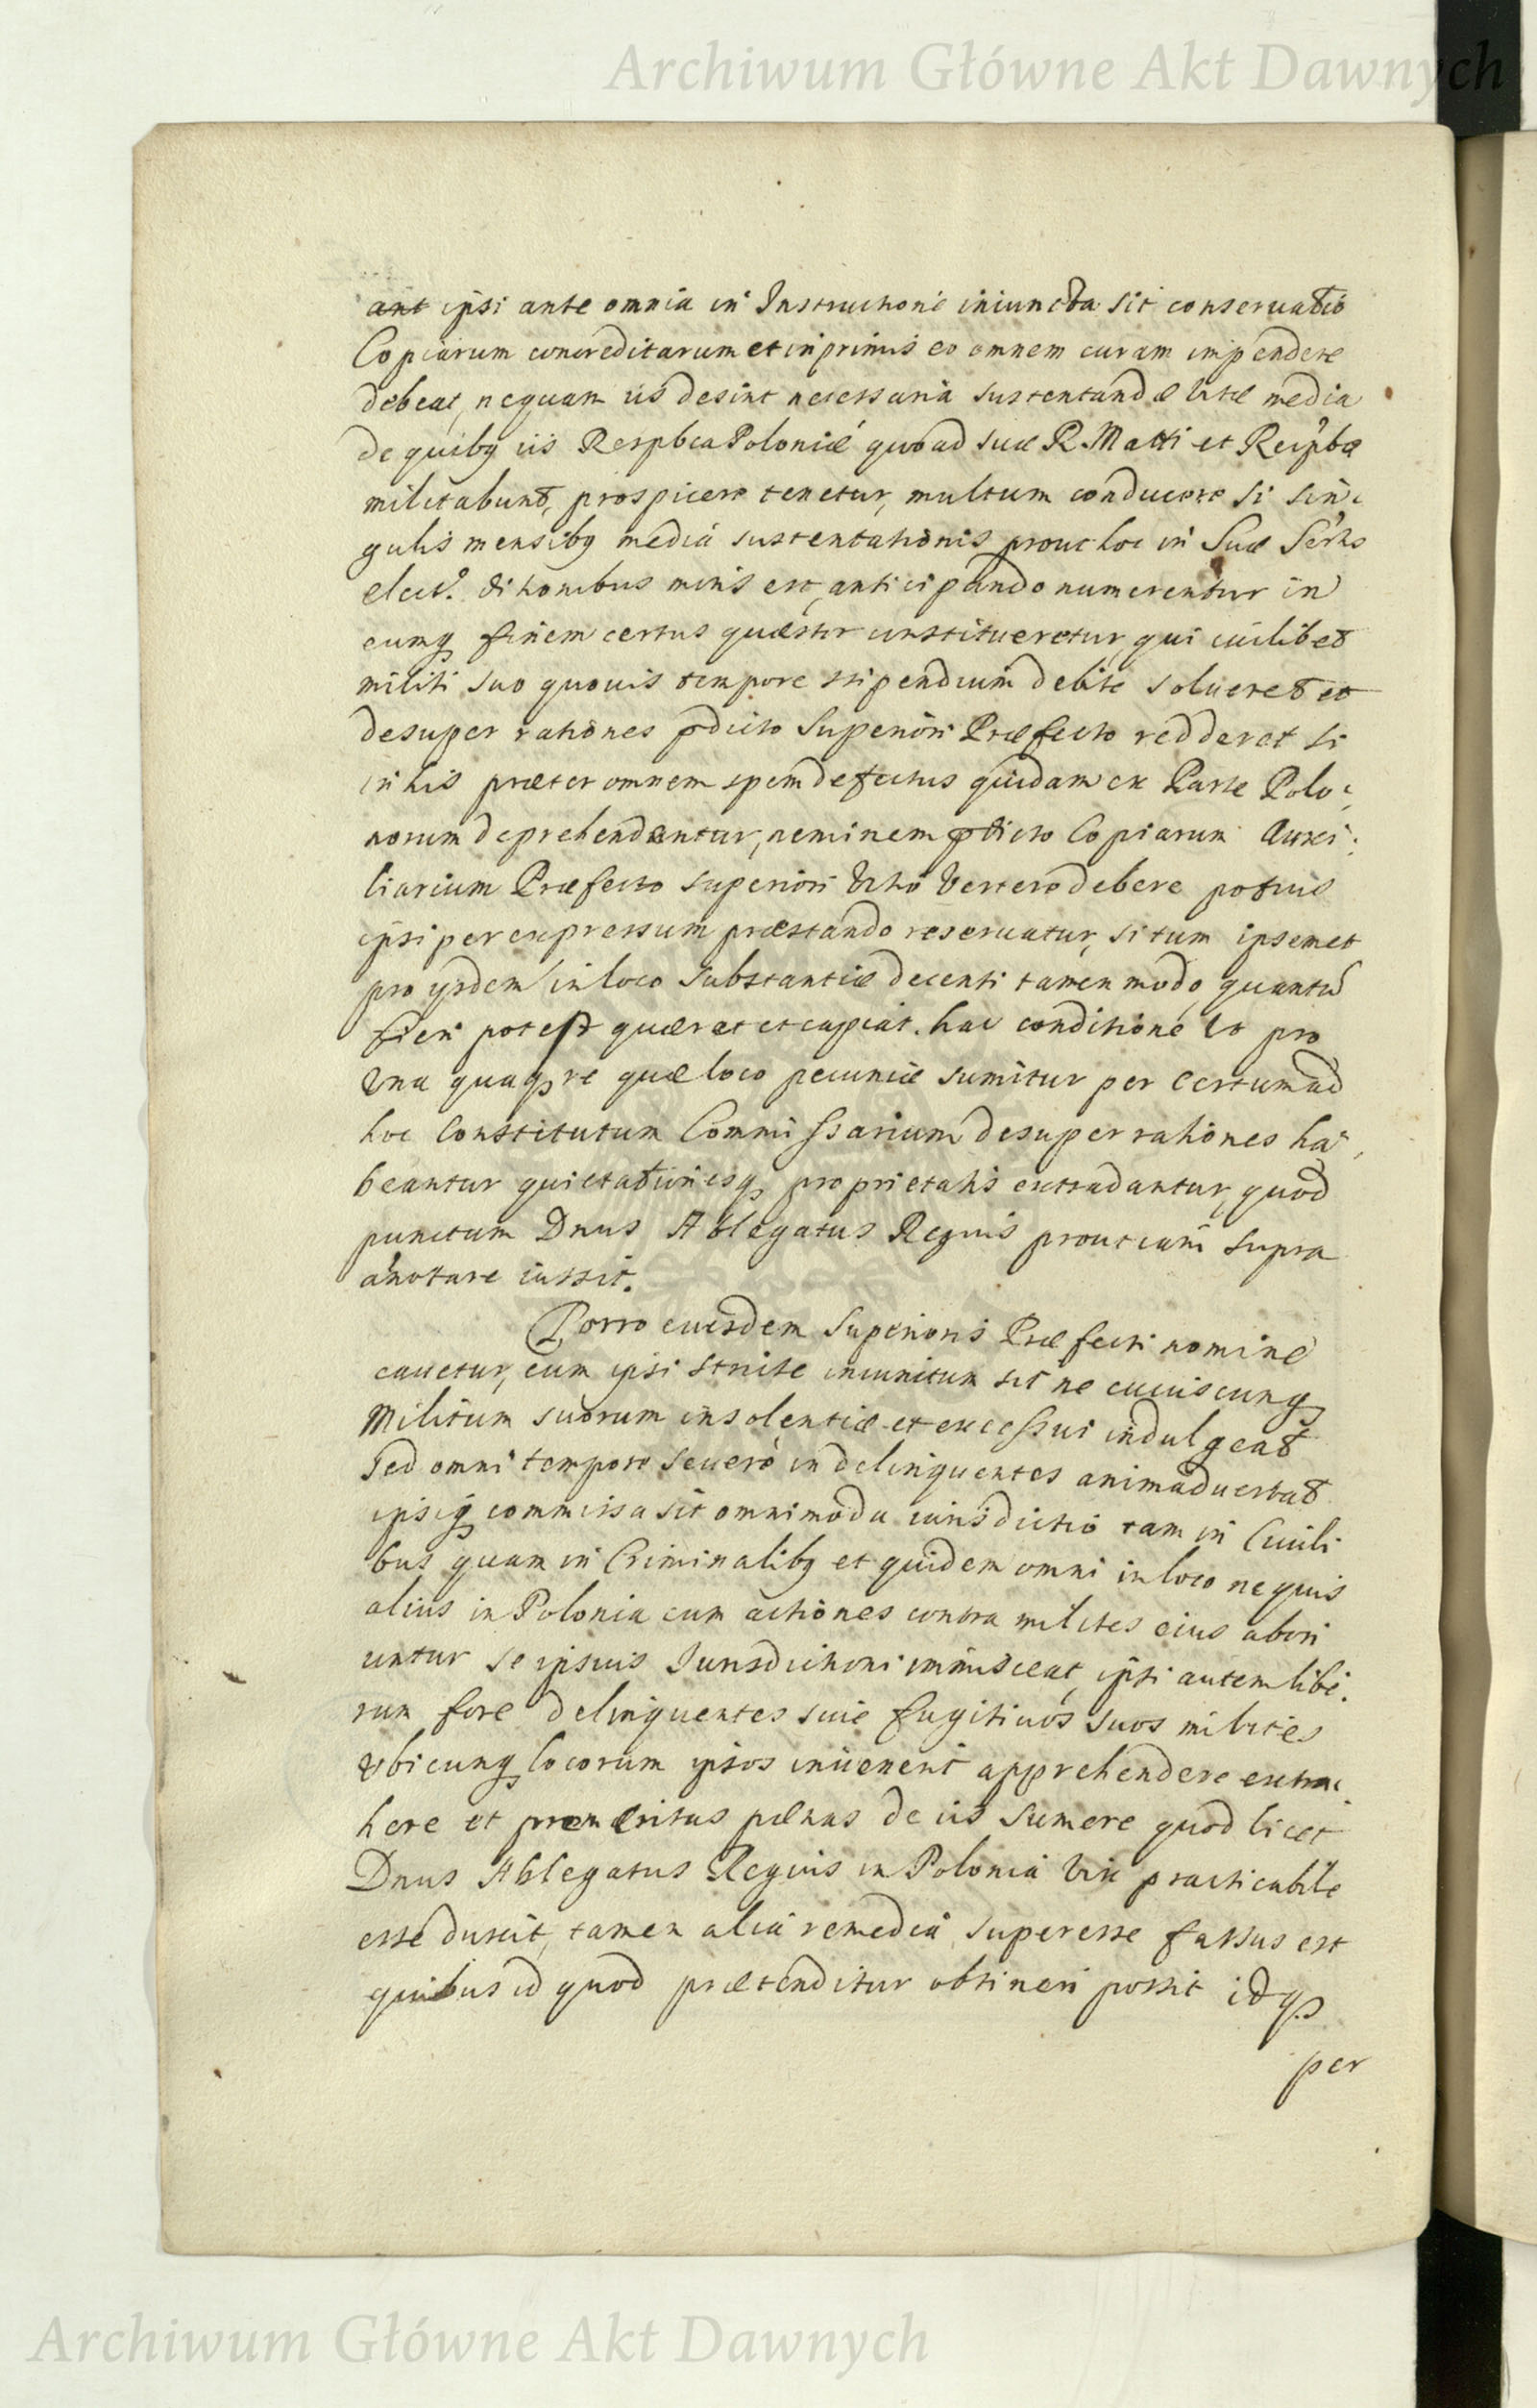 Archiwum Główne Akt Dawnych
ant ipsi ante omnia in Instructione iniuncta sit conseruatio
Copiarum concreditarum et inprimis eo omnem curam impendere
debeat, nequam iis desint necessaria sustentandæ vitæ media
de quibq iis Respbca Poloniæ quoad suæ R. Matti et Reipbæ
militabunt, prospicere tenetur, multum conducere si sin:
gulis mensibq media sustentationis prout hoc in Suæ Sertis
elect. ditionibus moris est, anticipando numerentur in
eumq finem certus quæstor constitueretur, qui cuilibet
militi suo quouis tempore stipendium debite solueret et
desuper rationes pdicto Superiori Præfecto redderet si
in his præter omnem spem defectus quidam ex Parte Polo:
norum deprehendantur, neminem pdicto Copiarum Auxi:
liarium Præfecto superiori vitio vertere debere potius
ipsi per expressum præstando reseruatur, si tum ipsemet
pro ijsdem in loco substantiæ decenti tamen modo, quantu
fieri potest quærat et capiat. hac conditione vt pro
vna quaqs re quæ loco pecuniæ sumitur per certum ad
hoc Constitutum Commissarium desuper rationes ha:
beantur quietationesqs proprietatis extradantur, quod
punctum Dnus Ablegatus Regius prout iam supra
anotare iussit.
Porro eiusdem Superioris Præfecti nomine
cauetur, cum ipsi stricte iniunctum sit ne cuiuscunq
Militum suorum insolentiæ et excessui indulgeat
sed omni tempore seuere in delinquentes animaduertat
ipsiq commissa sit omnimoda iurisdictio tam in Ciuili
bus quam in Criminalibq et quidem omni in loco ne quis
alius in Polonia cum actiones contra milites eius abori
untur se ipsius Iurisdictioni immisceat, ipsi autem libe:
rum fore delinquentes siue fugitiuos suos milites
vbicunq locorum ipsos inuenerit apprehendere extra:
here et promeritas pœnas de iis sumere quod licet
Dnus Ablegatus Regius in Polonia vix practicabile
esse duxit, tamen alia remedia superesse fassus est
quibus id quod prætenditur obtineri possit idqs
per
Archiwum Główne Akt Dawnych